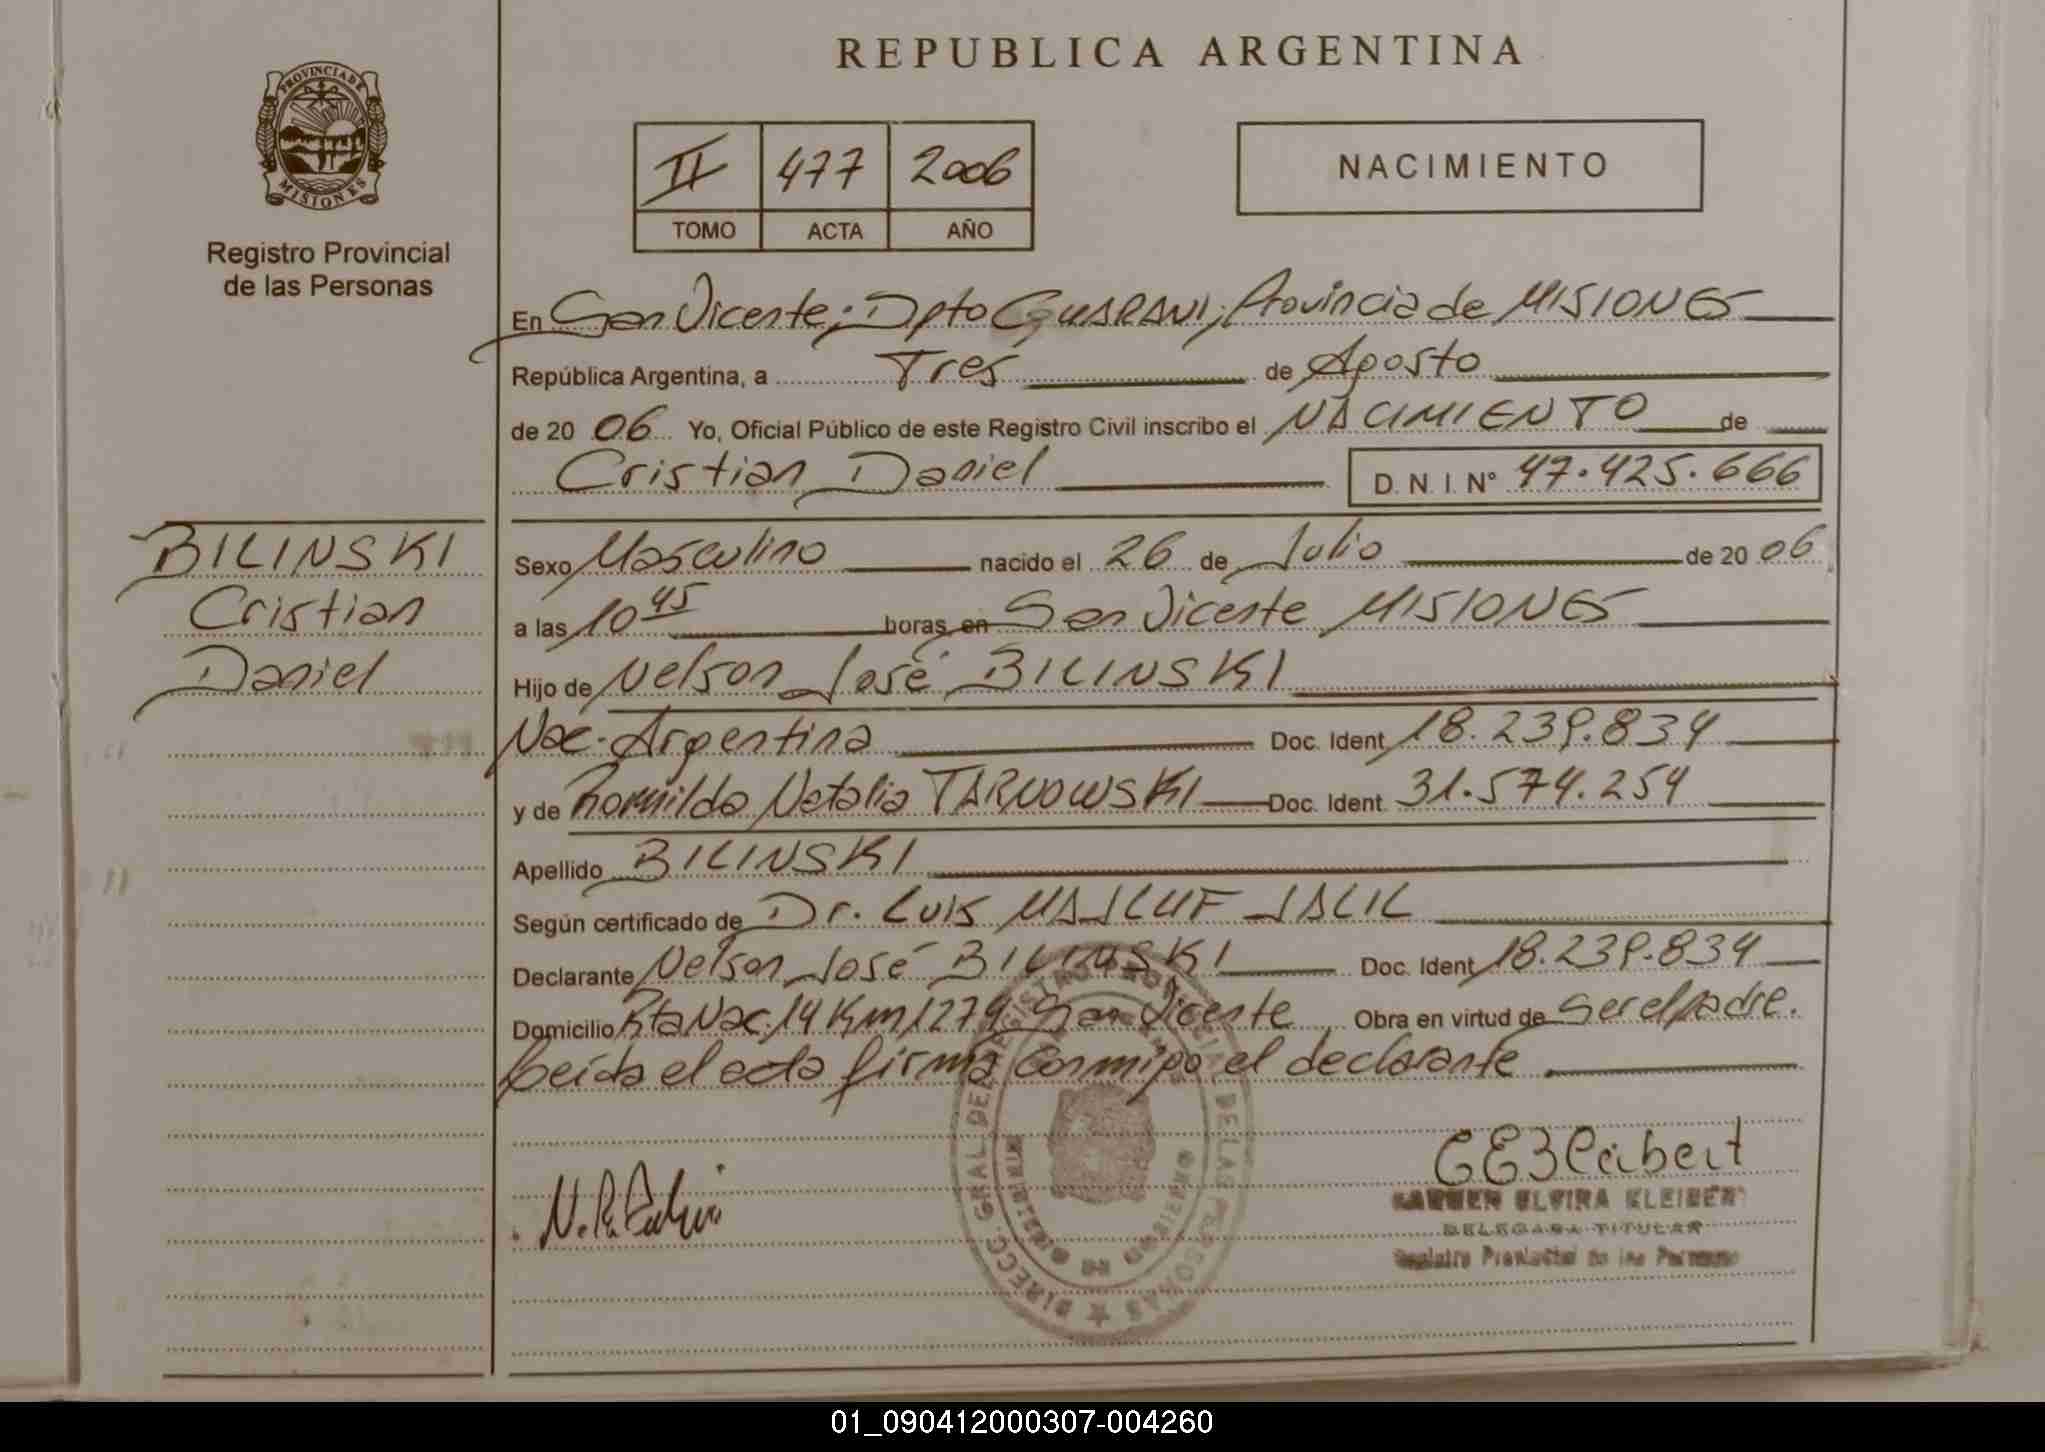 REPUBLICA ARGENTINA
PROVINCIA DE
MISIONES
Registro Provincial
de las Personas
II 477 2006
TOMO ACTA AÑO
NACIMIENTO
En San Vicente; Dpto GUARANI; Provincia de MISIONES
República Argentina, a Tres de Agosto
de 20 06 Yo, Oficial Público de este Registro Civil inscribo el NACIMIENTO de
Cristian Daniel D. N. I. N° 47.425.666
BILINSKI
Cristian
Daniel
Sexo Masculino nacido el 26 de Julio de 20 06
a las 10 45 horas, en San Vicente MISIONES
Hijo de Nelson José BILINSKI
Nac. Argentina Doc. Ident 18.239.834
y de Romilda Natalia TARNOWSKI Doc. Ident. 31.574.254
Apellido BILINSKI
Según certificado de Dr. Luis MAJLUF JALIL
Declarante Nelson José BILINSKI Doc. Ident 18.239.834
Domicilio Rta Nac. 14 Km 1279 San Vicente Obra en virtud de ser el padre.
Leída el acta firma conmigo el declarante
DIRECC. GRAL. DEL REGISTRO PROVINCIAL DE LAS PERSONAS
CARMEN ELVIRA KLEIBER
DELEGADA TITULAR
Registro Provincial de las Personas
01_090412000307-004260